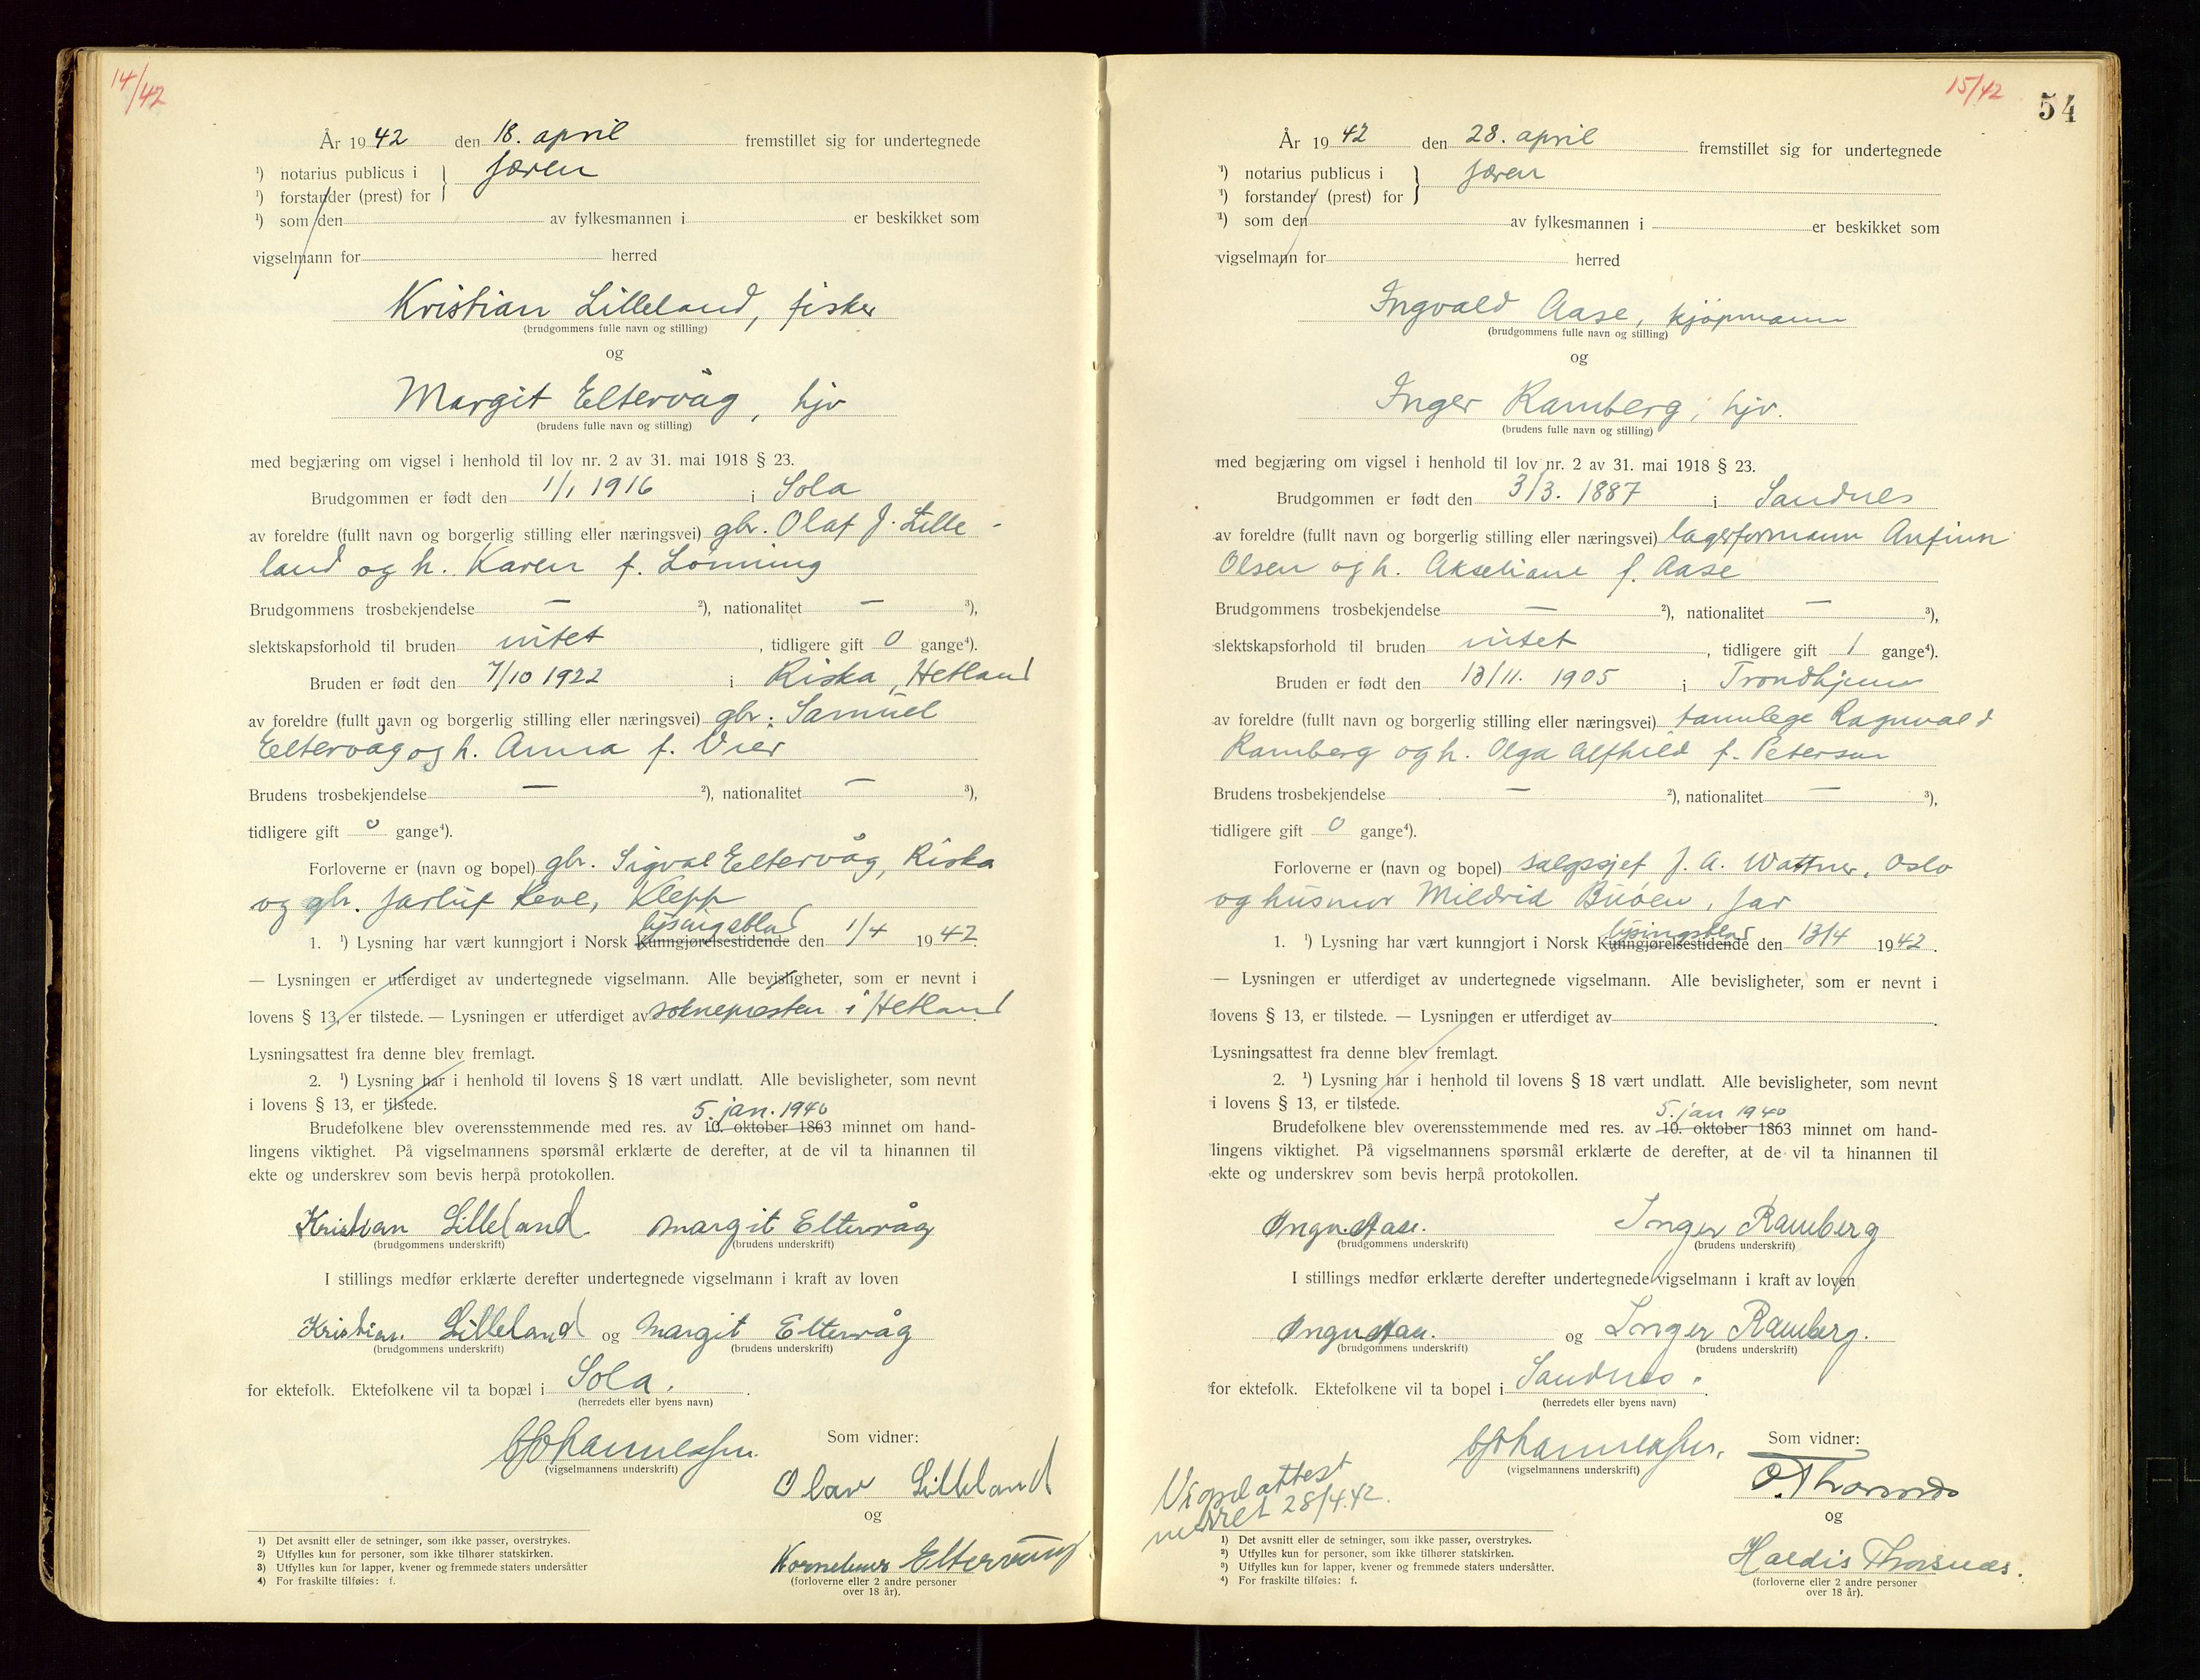 14/42
År 1942 den 18. april fremstillet sig for undertegnede
¹) notarius publicus i } Jæren
¹) forstander (prest) for
¹) som den av fylkesmannen i er beskikket som
vigselmann for herred
Kristian Lilleland, fisker
(brudgommens fulle navn og stilling)
og
Margit Eltervåg, hjv
(brudens fulle navn og stilling)
med begjæring om vigsel i henhold til lov nr. 2 av 31. mai 1918 § 23.
Brudgommen er født den 1/1 1916 i Sola
av foreldre (fullt navn og borgerlig stilling eller næringsvei) gbr. Olaf J. Lille-
land og h. Karen f. Lønning
Brudgommens trosbekjendelse — ²), nationalitet — ³),
slektskapsforhold til bruden intet, tidligere gift 0 gange⁴).
Bruden er født den 7/10 1922 i Riska, Hetland
av foreldre (fullt navn og borgerlig stilling eller næringsvei) gbr. Samuel
Eltervåg og h. Anna f. Vier
Brudens trosbekjendelse — ²), nationalitet — ³),
tidligere gift 0 gange⁴).
Forloverne er (navn og bopel) gbr. Sigval Eltervåg, Riska
og gbr. Jarluf Reve, Klepp
lysingsblad
1. ¹) Lysning har vært kunngjort i Norsk Kunngjørelsestidende den 1/4 1942.
— Lysningen er utferdiget av undertegnede vigselmann. Alle bevisligheter, som er nevnt i
lovens § 13, er tilstede. — Lysningen er utferdiget av sokneprester i Hetland
Lysningsattest fra denne blev fremlagt.
2. ¹) Lysning har i henhold til lovens § 18 vært undlatt. Alle bevisligheter, som nevnt
i lovens § 13, er tilstede.
5. jan. 1940
Brudefolkene blev overensstemmende med res. av 10. oktober 1863 minnet om hand-
lingens viktighet. På vigselmannens spørsmål erklærte de derefter, at de vil ta hinannen til
ekte og underskrev som bevis herpå protokollen.
Kristian Lilleland. Margit Eltervåg
(brudgommens underskrift) (brudens underskrift)
I stillings medfør erklærte derefter undertegnede vigselmann i kraft av loven
Kristian. Lilleland og Margit Eltervåg
(brudgommens underskrift) (brudens underskrift)
for ektefolk. Ektefolkene vil ta bopæl i Sola.
(herredets eller byens navn)
Johannessen.
(vigselmannens underskrift)
Som vidner:
Olav Lilleland
og
Kornelius Eltervaag
(forloverne eller 2 andre personer
over 18 år).
1) Det avsnitt eller de setninger, som ikke passer, overstrykes.
2) Utfylles kun for personer, som ikke tilhører statskirken.
3) Utfylles kun for lapper, kvener og fremmede staters undersåtter
4) For fraskilte tilføies: f.
15/42
54
År 1942 den 28. april fremstillet sig for undertegnede
¹) notarius publicus i } Jæren
¹) forstander (prest) for
¹) som den av fylkesmannen i er beskikket som
vigselmann for herred
Ingvald Aase, kjøpmann
(brudgommens fulle navn og stilling)
og
Inger Ramberg, hjv.
(brudens fulle navn og stilling)
med begjæring om vigsel i henhold til lov nr. 2 av 31. mai 1918 § 23.
Brudgommen er født den 3/3. 1887 i Sandnes
av foreldre (fullt navn og borgerlig stilling eller næringsvei) lagerformann Anfinn
Olsen og h. Akseliane f. Aase
Brudgommens trosbekjendelse — ²), nationalitet — ³),
slektskapsforhold til bruden intet, tidligere gift 1 gange⁴).
Bruden er født den 13/11. 1905 i Trondhjem
av foreldre (fullt navn og borgerlig stilling eller næringsvei) tannlege Ragnvald
Ramberg og h. Olga Alfhild f. Petersen
Brudens trosbekjendelse — ²), nationalitet — ³),
tidligere gift 0 gange⁴).
Forloverne er (navn og bopel) salgssjef J. A. Wattner, Oslo
og husmor Mildrid Buøen, Jar
lysingsblad
1. ¹) Lysning har vært kunngjort i Norsk Kunngjørelsestidende den 13/4 1942.
— Lysningen er utferdiget av undertegnede vigselmann. Alle bevisligheter, som er nevnt i
lovens § 13, er tilstede. — Lysningen er utferdiget av
Lysningsattest fra denne blev fremlagt.
2. ¹) Lysning har i henhold til lovens § 18 vært undlatt. Alle bevisligheter, som nevnt
i lovens § 13, er tilstede.
5. jan 1940
Brudefolkene blev overensstemmende med res. av 10. oktober 1863 minnet om hand-
lingens viktighet. På vigselmannens spørsmål erklærte de derefter, at de vil ta hinannen til
ekte og underskrev som bevis herpå protokollen.
Ingv. Aase. Inger Ramberg
(brudgommens underskrift) (brudens underskrift)
I stillings medfør erklærte derefter undertegnede vigselmann i kraft av loven
Ingv Aase. og Inger Ramberg.
(brudgommens underskrift) (brudens underskrift)
for ektefolk. Ektefolkene vil ta bopel i Sandnes.
(herredets eller byens navn)
Johannessen.
(vigselmannens underskrift)
Som vidner:
O. Thorsnæs
og
Haldis Thorsnæs.
(forloverne eller 2 andre personer
over 18 år).
Vigselattest
28/4.42.
1) Det avsnitt eller de setninger, som ikke passer, overstrykes.
2) Utfylles kun for personer, som ikke tilhører statskirken.
3) Utfylles kun for lapper, kvener og fremmede staters undersåtter.
4) For fraskilte tilføies: f.